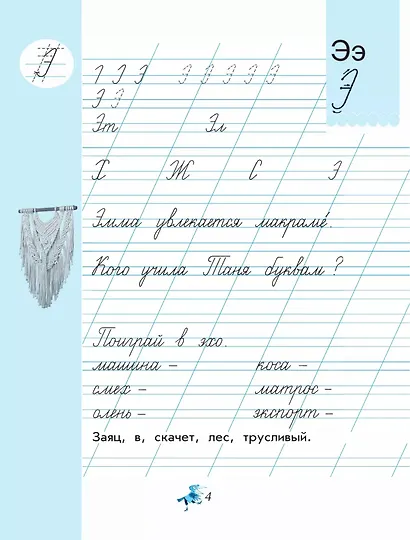 Ээ
Э
Э
Э Э Э Э Э
Э Э
Эт Эл
Х Ж С Э
Эмма увлекается макраме́.
Кого учила Таня буквам?
Поиграй в эхо.
машина – коса –
смех – матрос –
олень – экспорт –
Заяц, в, скачет, лес, трусливый.
4